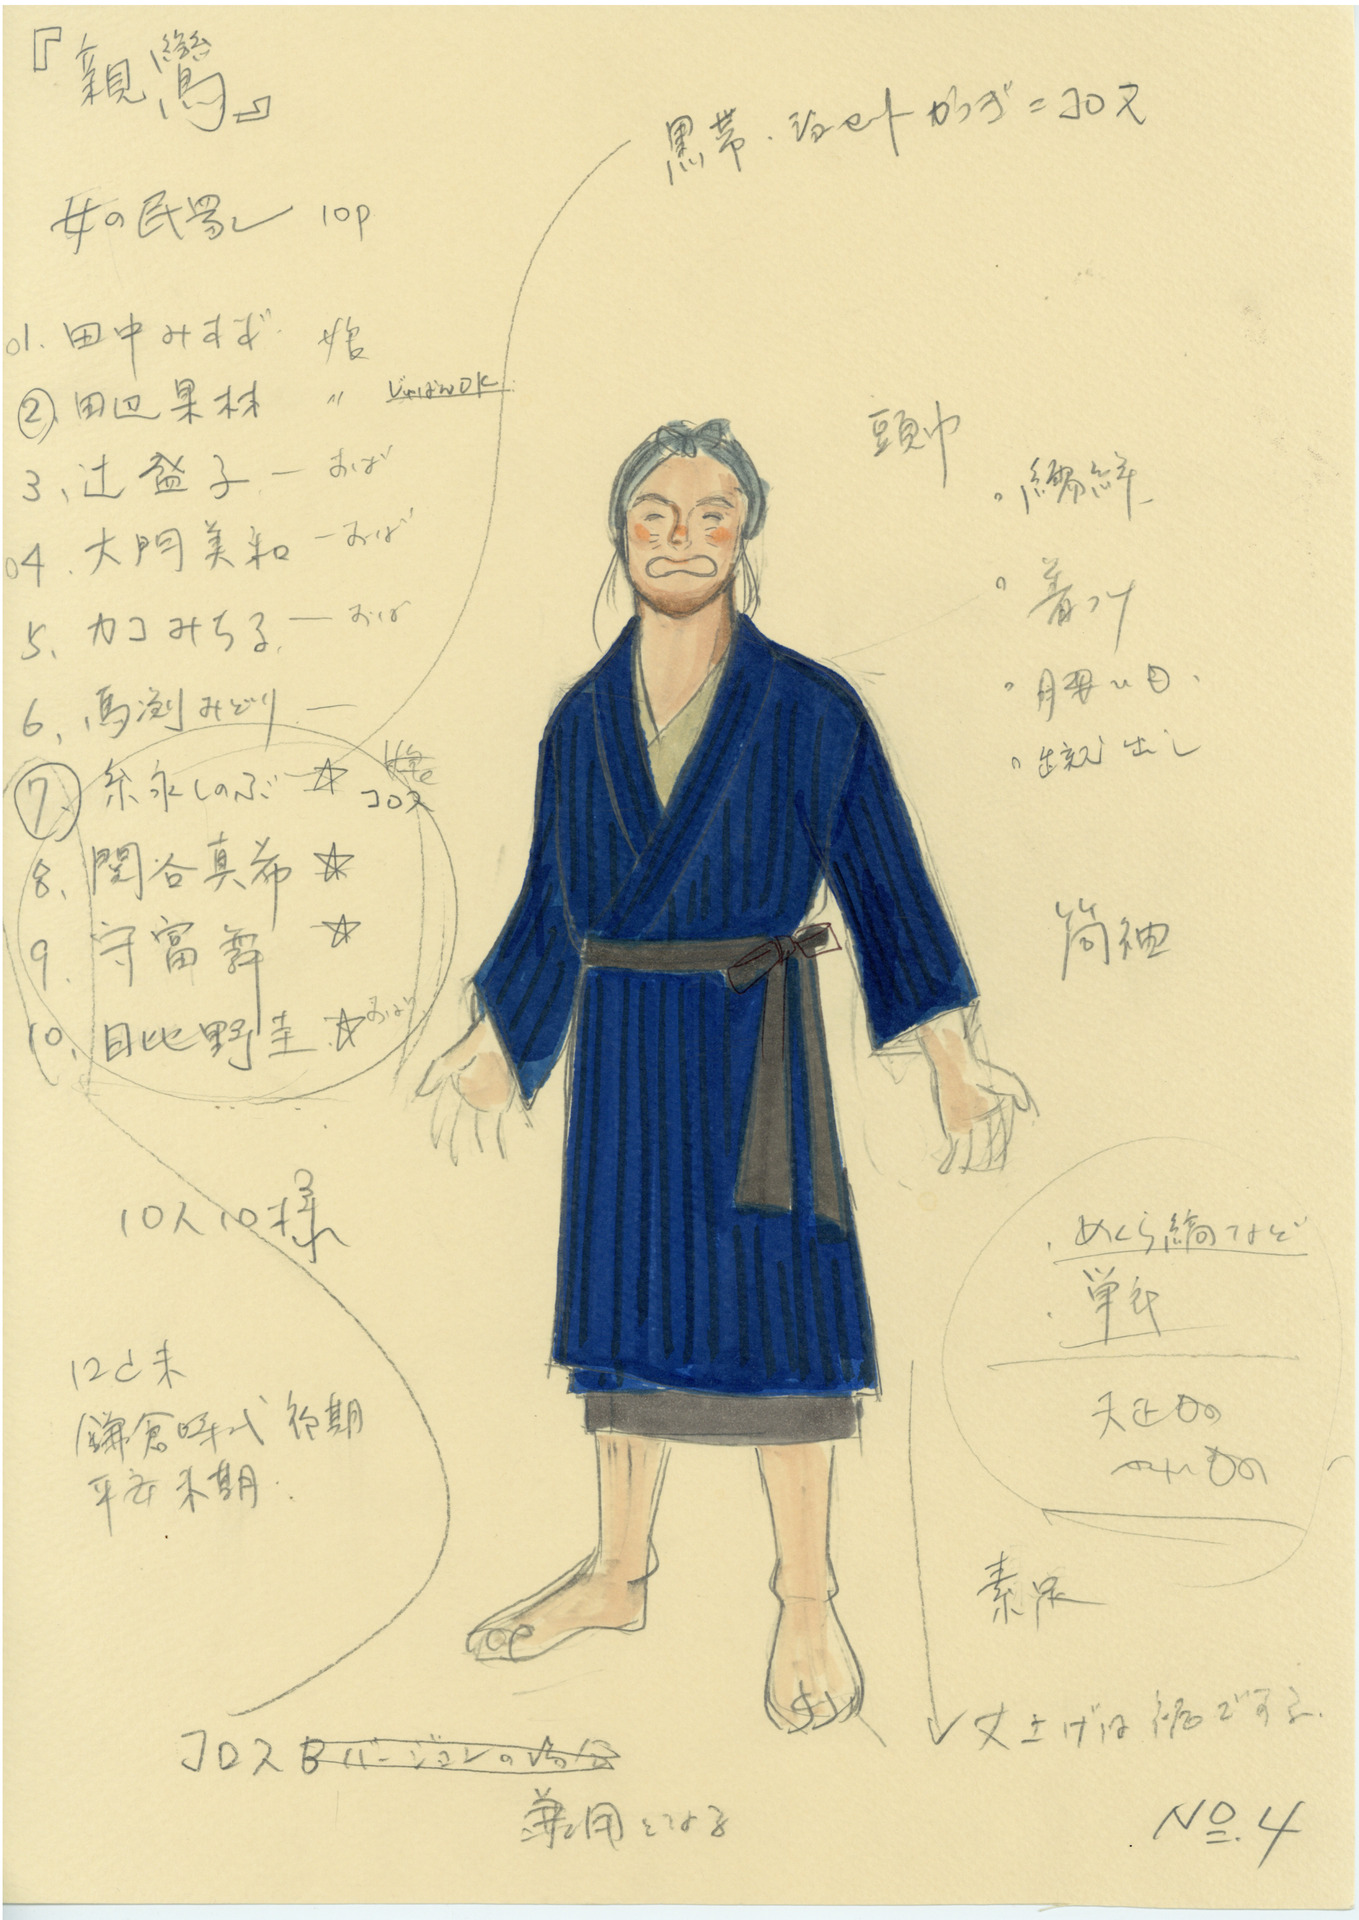 『親鸞』
女の民衆 10p
01. 田中みすず 娘
② 田辺果林 〃 じゅばんOK
3、辻益子 ー おば
04. 大門美和 ー おば
5、カコみちる ー おば
6、馬渕みどり ー
⑦ 糸永しのぶ ☆ 娘
コロス
8、関谷真希 ☆
9、守富舞 ☆
10、日比野圭 ☆ おば
10人10様
12C末
鎌倉時代 初期
平安末期
コロスBバージョンの場合
兼用となる
黒帯・ショートカツラ=コロス
頭巾
。襦袢
。着つけ
。腰ヒモ
筒袖
・めくら縞など
・単衣
大正もの
素足
丈上げは裾でする。
No.4